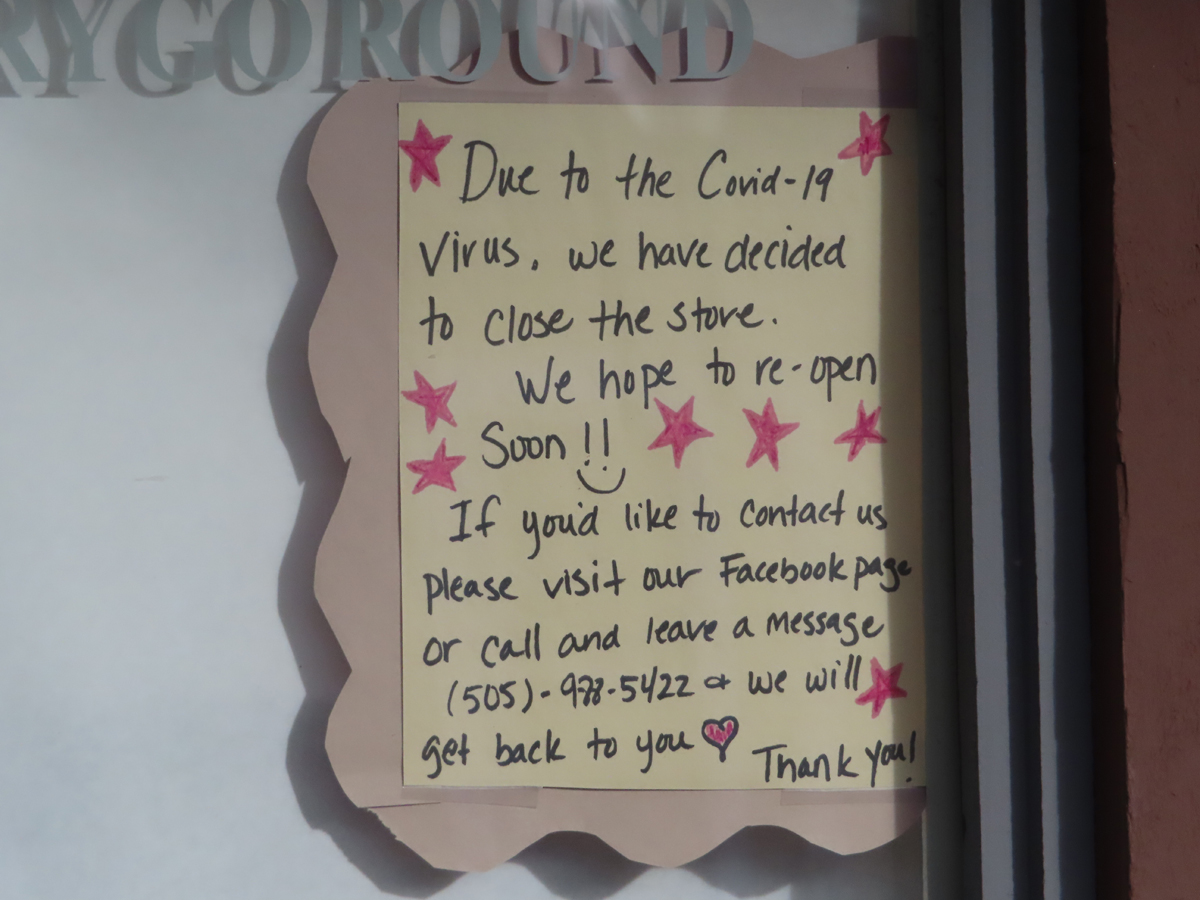 RYGOROUND
Due to the Covid-19
Virus, we have decided
to close the store.
We hope to re-open
Soon !!
If you'd like to contact us
please visit our Facebook page
or call and leave a message
(505)-978-5422 & we will
get back to you
Thank you!